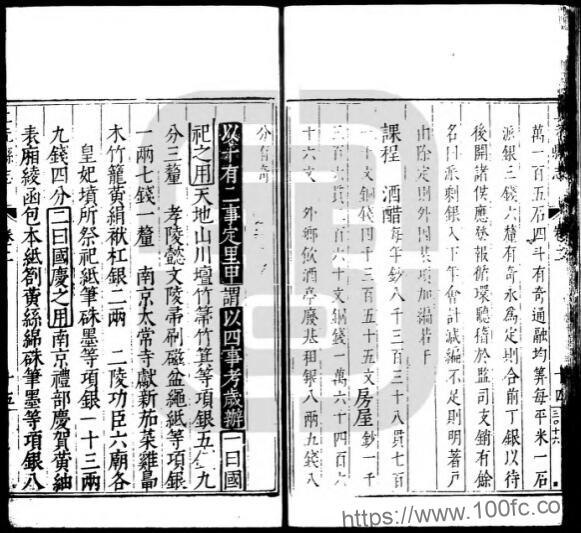 萬一百五石四斗有奇通融均算每平米一石
派銀三錢六釐有奇永為定則合前丁銀以待
後開諸侯應務報循環聽稽於監司支銷有餘
名曰派剩銀入下年會計減編不足則明著戶
由除定則外因某項加編若干
課程 酒醋每年鈔八千三百三十八貫七百
一十文銅錢四千三百五十五文房屋鈔一千
三百六貫二百六十文銅錢一萬六十四百六
十六文 外鄉飲酒亭廢基租銀八兩九錢八
分有奇
以十有二事定里甲謂以四事考歲辦一曰國
祀之用天地山川壇竹箒竹筐等項銀五兩九
分三釐 孝陵懿文陵帚刷磁盆繩紙等項銀
一兩七錢一釐 南京太常寺獻新茄菜雞鼠
木竹籠黃絹袱杠銀二兩 二陵功臣六廟各
皇妃墳所祭祀紙筆硃墨等項銀一十三兩
九錢四分二曰國慶之用南京禮部慶賀黃紬
表廂綾函包本紙劄黃絲綿硃筆墨等項銀八
志
卷二
卷二
十四
https://www.100fc.co